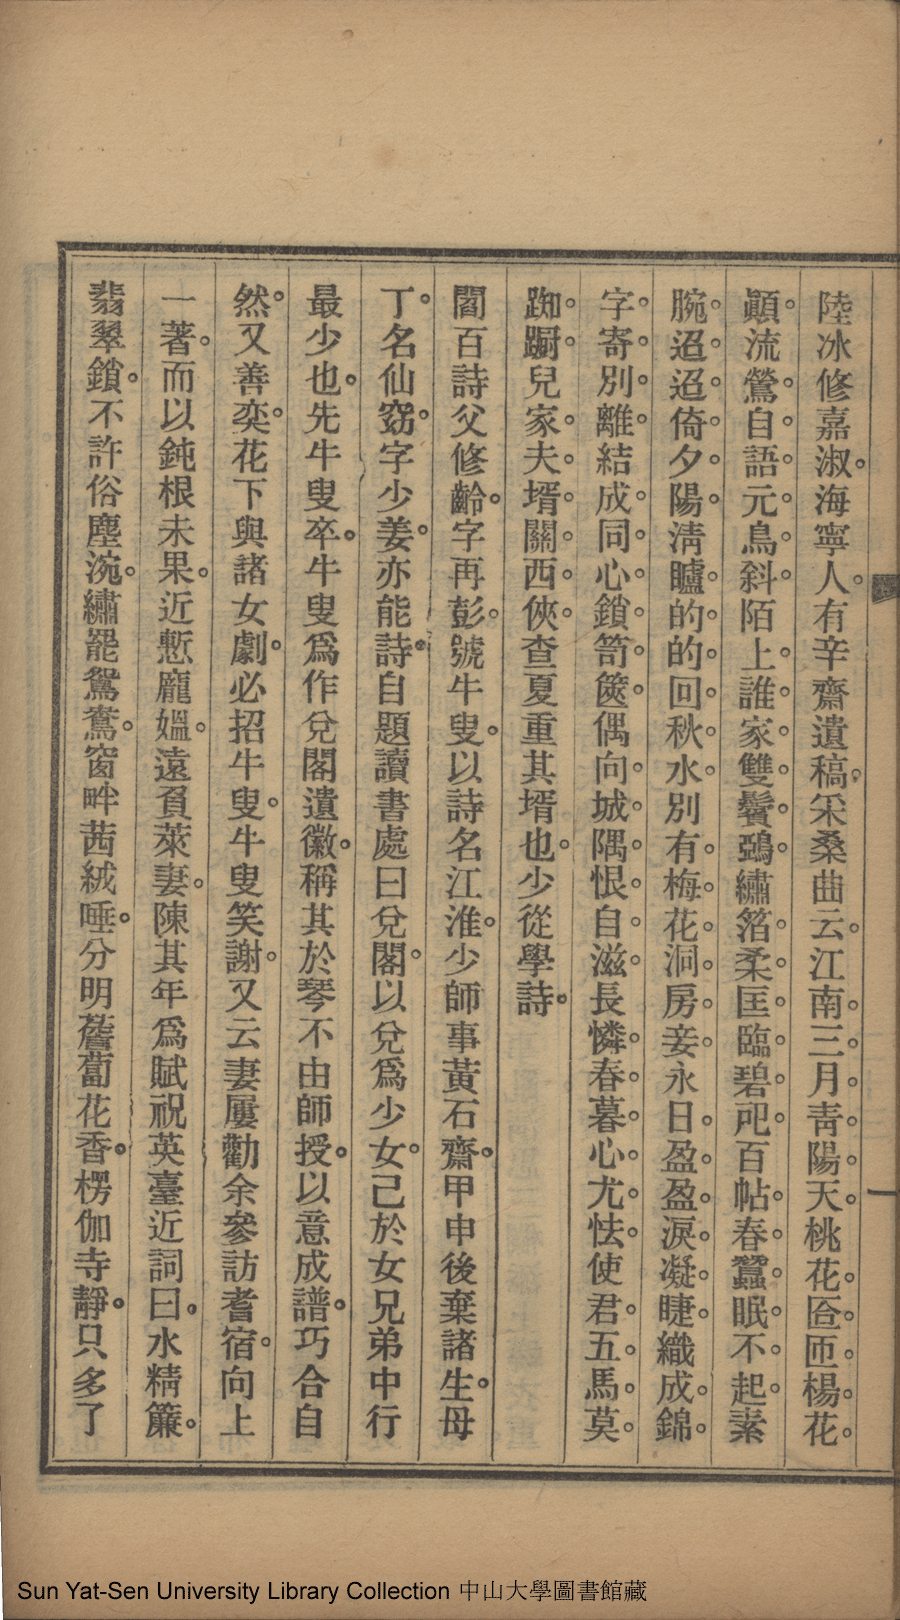 陸冰修嘉淑海寧人有辛齋遺稿采桑曲云江南三月靑陽天桃花匼匝楊花
顚流鶯自語元鳥斜陌上誰家雙鬢鵶繡箔柔匡臨碧戺百帖春蠶眠不起素
腕迢迢倚夕陽淸矑的的回秋水別有梅花洞房妾永日盈盈淚凝睫織成錦
字寄別離結成同心鎖笥篋偶向城隅恨自滋長憐春暮心尤怯使君五馬莫
踟躕兒家夫壻關西俠查夏重其壻也少從學詩
閻百詩父修齡字再彭號牛叟以詩名江淮少師事黃石齋甲申後棄諸生母
丁名仙窈字少姜亦能詩自題讀書處曰兌閣以兌爲少女己於女兄弟中行
最少也先牛叟卒牛叟爲作兌閣遺徽稱其於琴不由師授以意成譜巧合自
然又善奕花下與諸女劇必招牛叟牛叟笑謝又云妻屢勸余參訪耆宿向上
一著而以鈍根未果近慙龐媼遠負萊妻陳其年爲賦祝英臺近詞曰水精簾
翡翠鎖不許俗塵涴繡罷鴛鴦窗畔茜絨唾分明薝蔔花香楞伽寺靜只多了
Sun Yat-Sen University Library Collection 中山大學圖書館藏